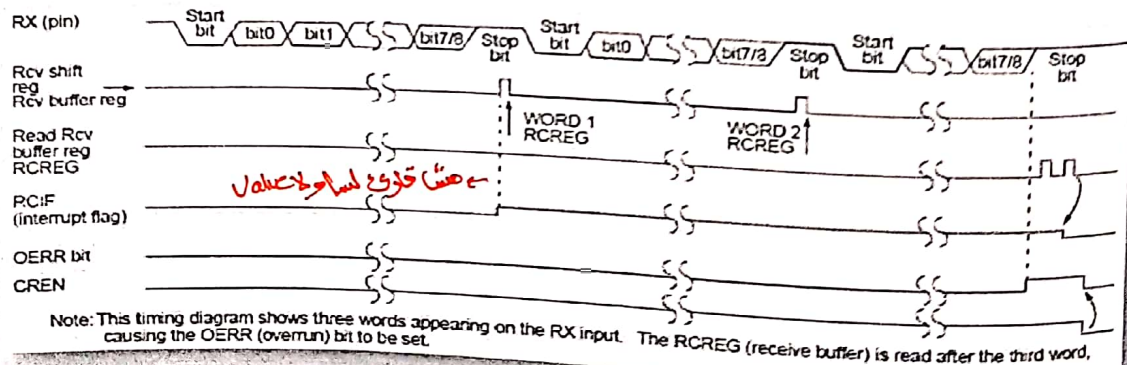 RX (pin)
Start bit bit0 bit1 bit7/8 Stop bit Start bit bit0 bit7/8 Stop bit Start bit bit7/8 Stop bit
Rcv shift
reg
Rcv buffer reg
WORD 1
RCREG
WORD 2
RCREG
Read Rcv
buffer reg
RCREG
مش قارئ لساو لا value
RCIF
(interrupt flag)
OERR bit
CREN
Note: This timing diagram shows three words appearing on the RX input. The RCREG (receive buffer) is read after the third word,
causing the OERR (overrun) bit to be set.